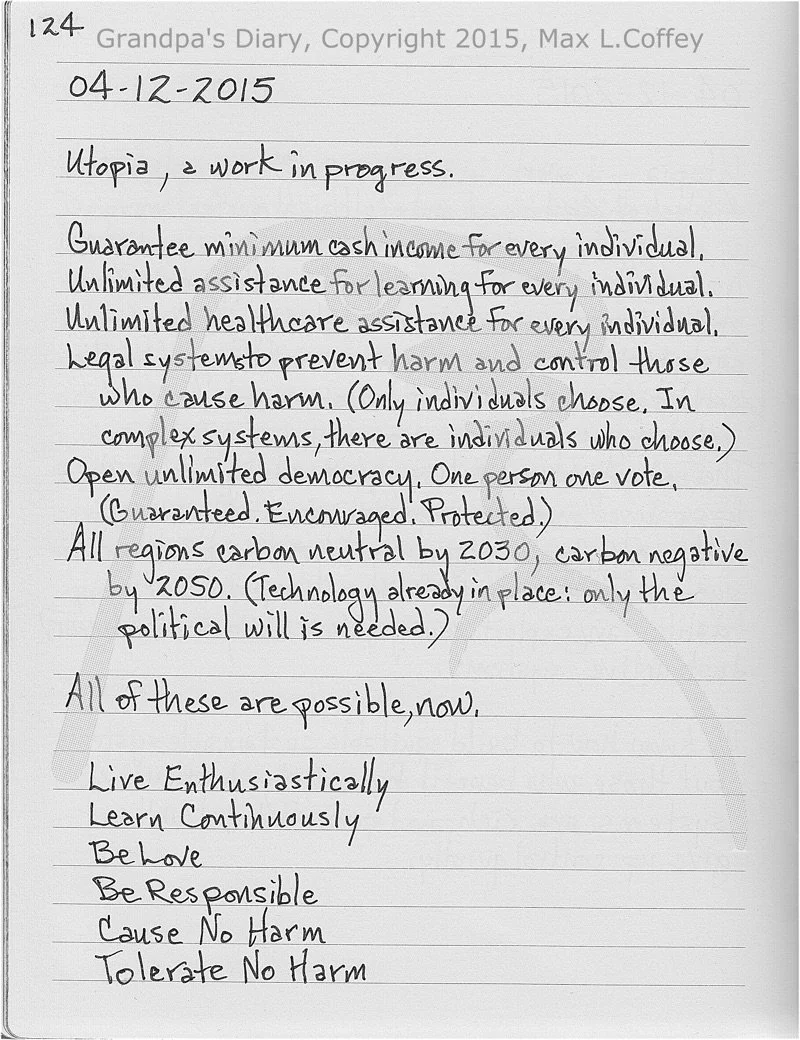 124
Grandpa's Diary, Copyright 2015, Max L.Coffey
04-12-2015
Utopia, a work in progress.
Guarantee minimum cash income for every individual.
Unlimited assistance for learning for every individual.
Unlimited healthcare assistance for every individual.
Legal systems to prevent harm and control those
who cause harm. (Only individuals choose. In
complex systems, there are individuals who choose.)
Open unlimited democracy. One person one vote.
(Guaranteed. Encouraged. Protected.)
All regions carbon neutral by 2030, carbon negative
by 2050. (Technology already in place: only the
political will is needed.)
All of these are possible, now.
Live Enthusiastically
Learn Continuously
Be Love
Be Responsible
Cause No Harm
Tolerate No Harm